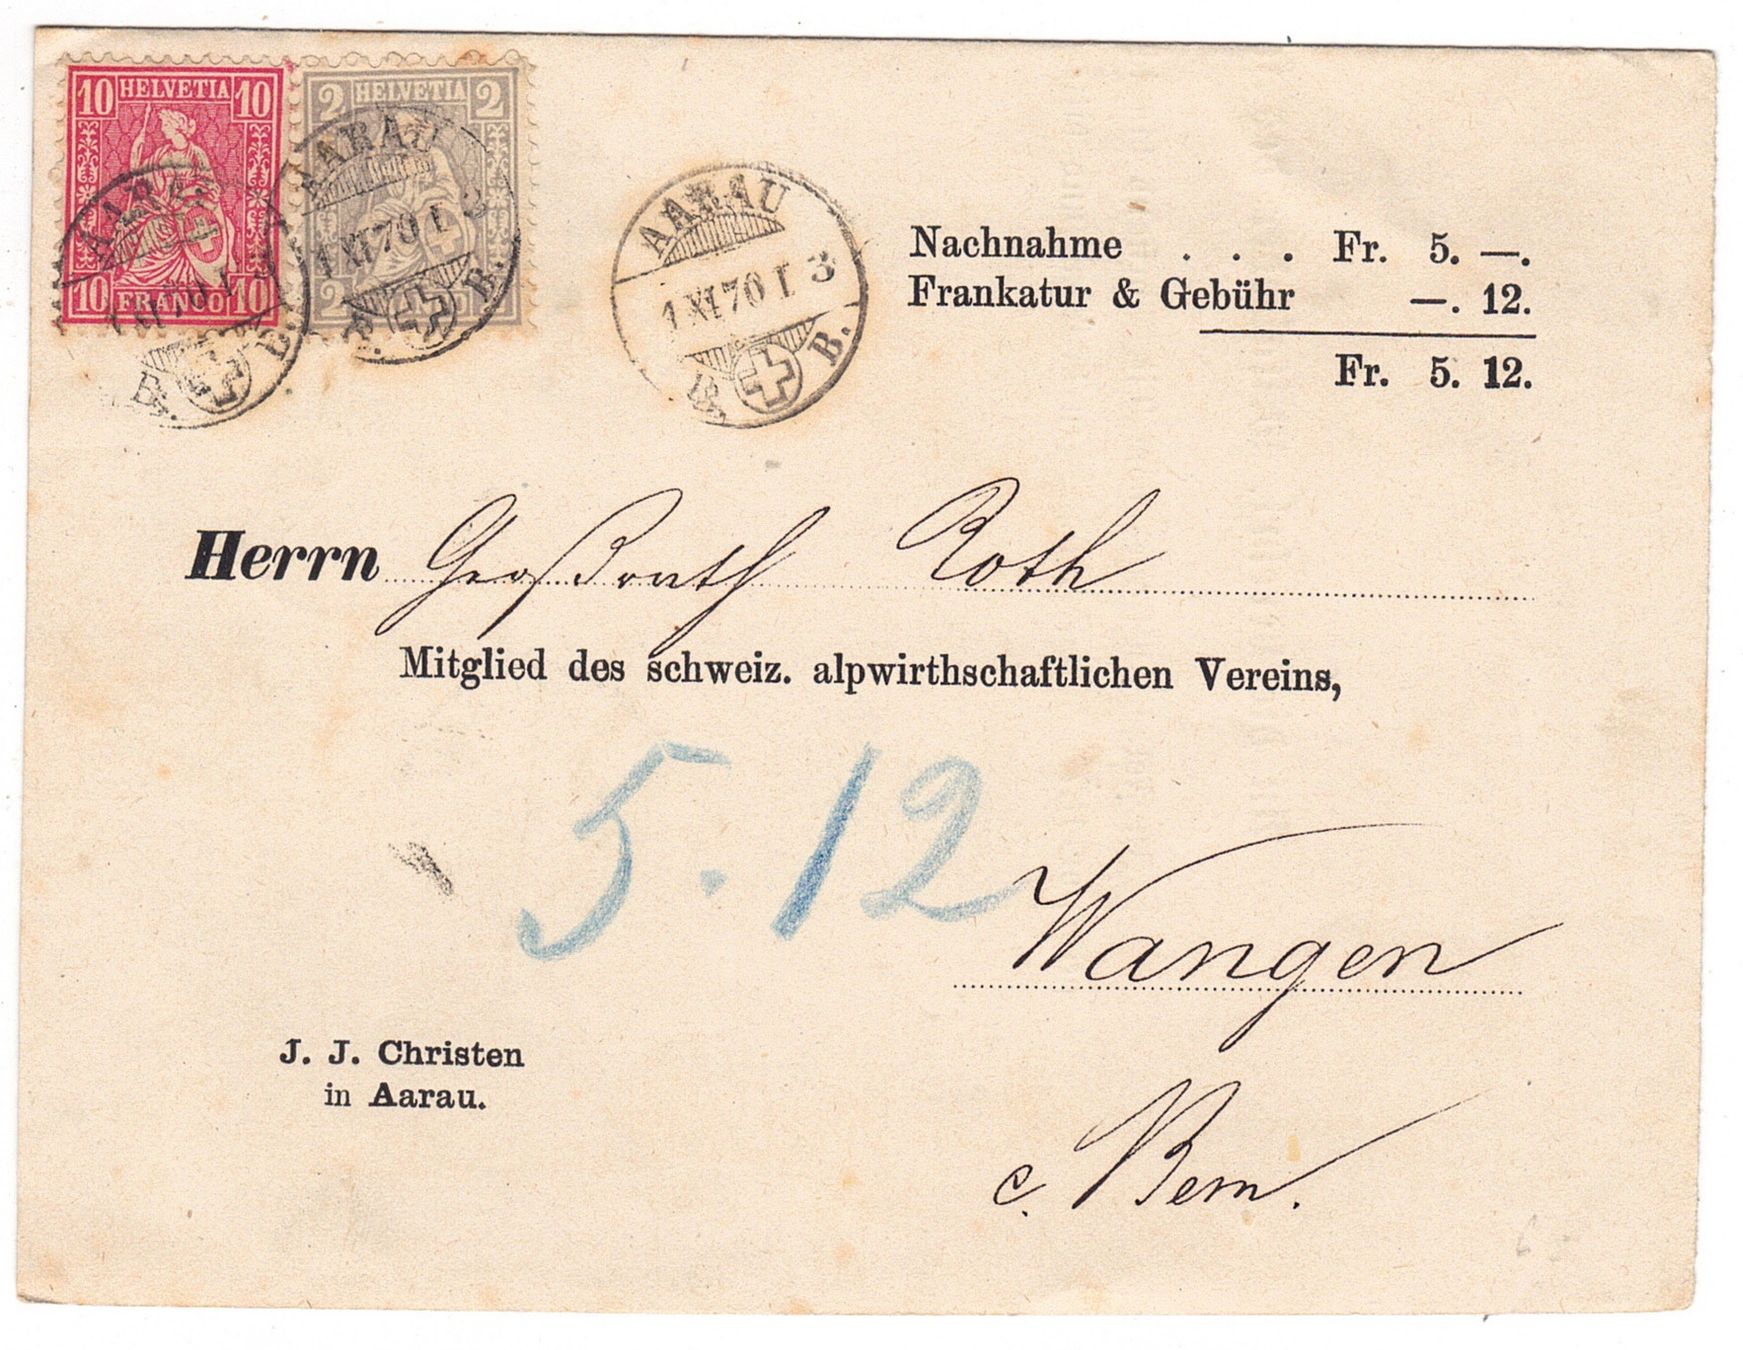 10 HELVETIA 10
10 FRANCO 10
2 HELVETIA 2
2
AARAU
1 XI 70 I 3
B.
AARAU
1 XI 70 I 3
B.
Nachnahme . . . Fr. 5. —.
Frankatur & Gebühr —. 12.
Fr. 5. 12.
Herrn Großrath Roth
Mitglied des schweiz. alpwirthschaftlichen Vereins,
5.12
Wangen
J. J. Christen
in Aarau.
c. Bern.